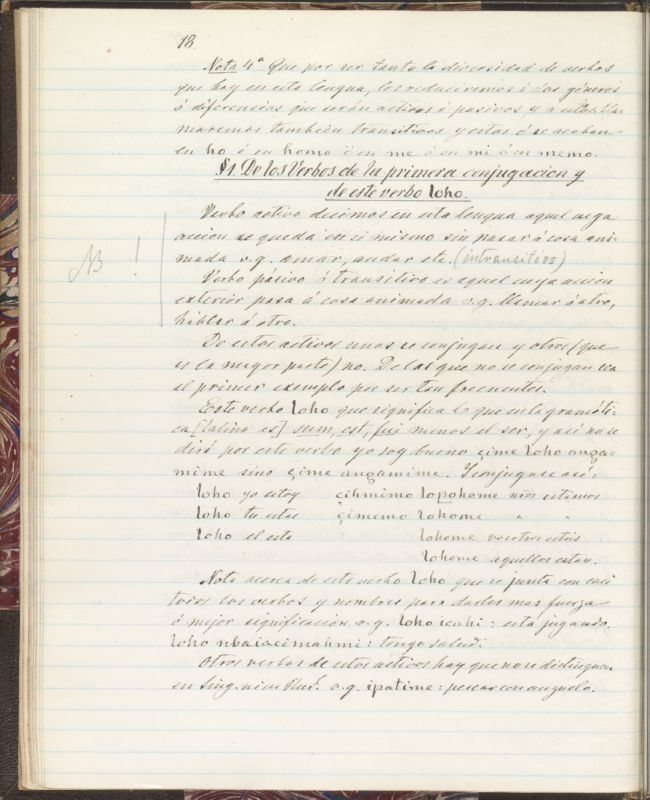 18.
Nota 4ª Que por ser tanta la diversidad de verbos
que hay en esta lengua, los reduciremos á dos géneros
ó diferencias que serán activos ó pasivos y a estos lla-
maremos tambien transitivos y estos ó se acaban
en ho ó en homo ó en me ó en mi ó en memo.
§1. De los Verbos de la primera conjugacion y
de este verbo loho.
Verbo activo decimos en esta lengua aquel cuya
accion se queda en si mismo sin pasar á cosa ani-
mada v.g. amar, andar etc. (intransitivo)
NB !
Verbo pásivo ó transitivo es aquel cuya accion
exterior pasa á cosa animada v.g. llamar á otro,
hablar á otro.
De estos activos unos se conjugan y otros (que
es la mayor parte) no. De los que no se conjugan sea
el primer exemplo por ser tan frecuentes.
Este verbo loho que significa lo que en la gramáti-
ca [latina es] sum, est, fui menos el ser, y así no se
dirá por este verbo yo soy bueno çime loho anga-
mime sino çime angamime. Y conjugase así:
loho yo estoy çihmimo lopohome nos estamos
loho tu estas çimemo lohome " "
loho el esta lohome vosotros estais
lohome aquellos estan.
Nota acerca de este verbo loho que se junta con casi
todos los verbos y nombres para darles mas fuerza
ó mejor significacion v.g. loho icahi: está jugando.
loho nbaiacimahmi: tengo salud.
Otros verbos de estos activos hay que no se distinguen
en Sing. ni en Plur. v.g. ipatime: pescar con anzuelo.